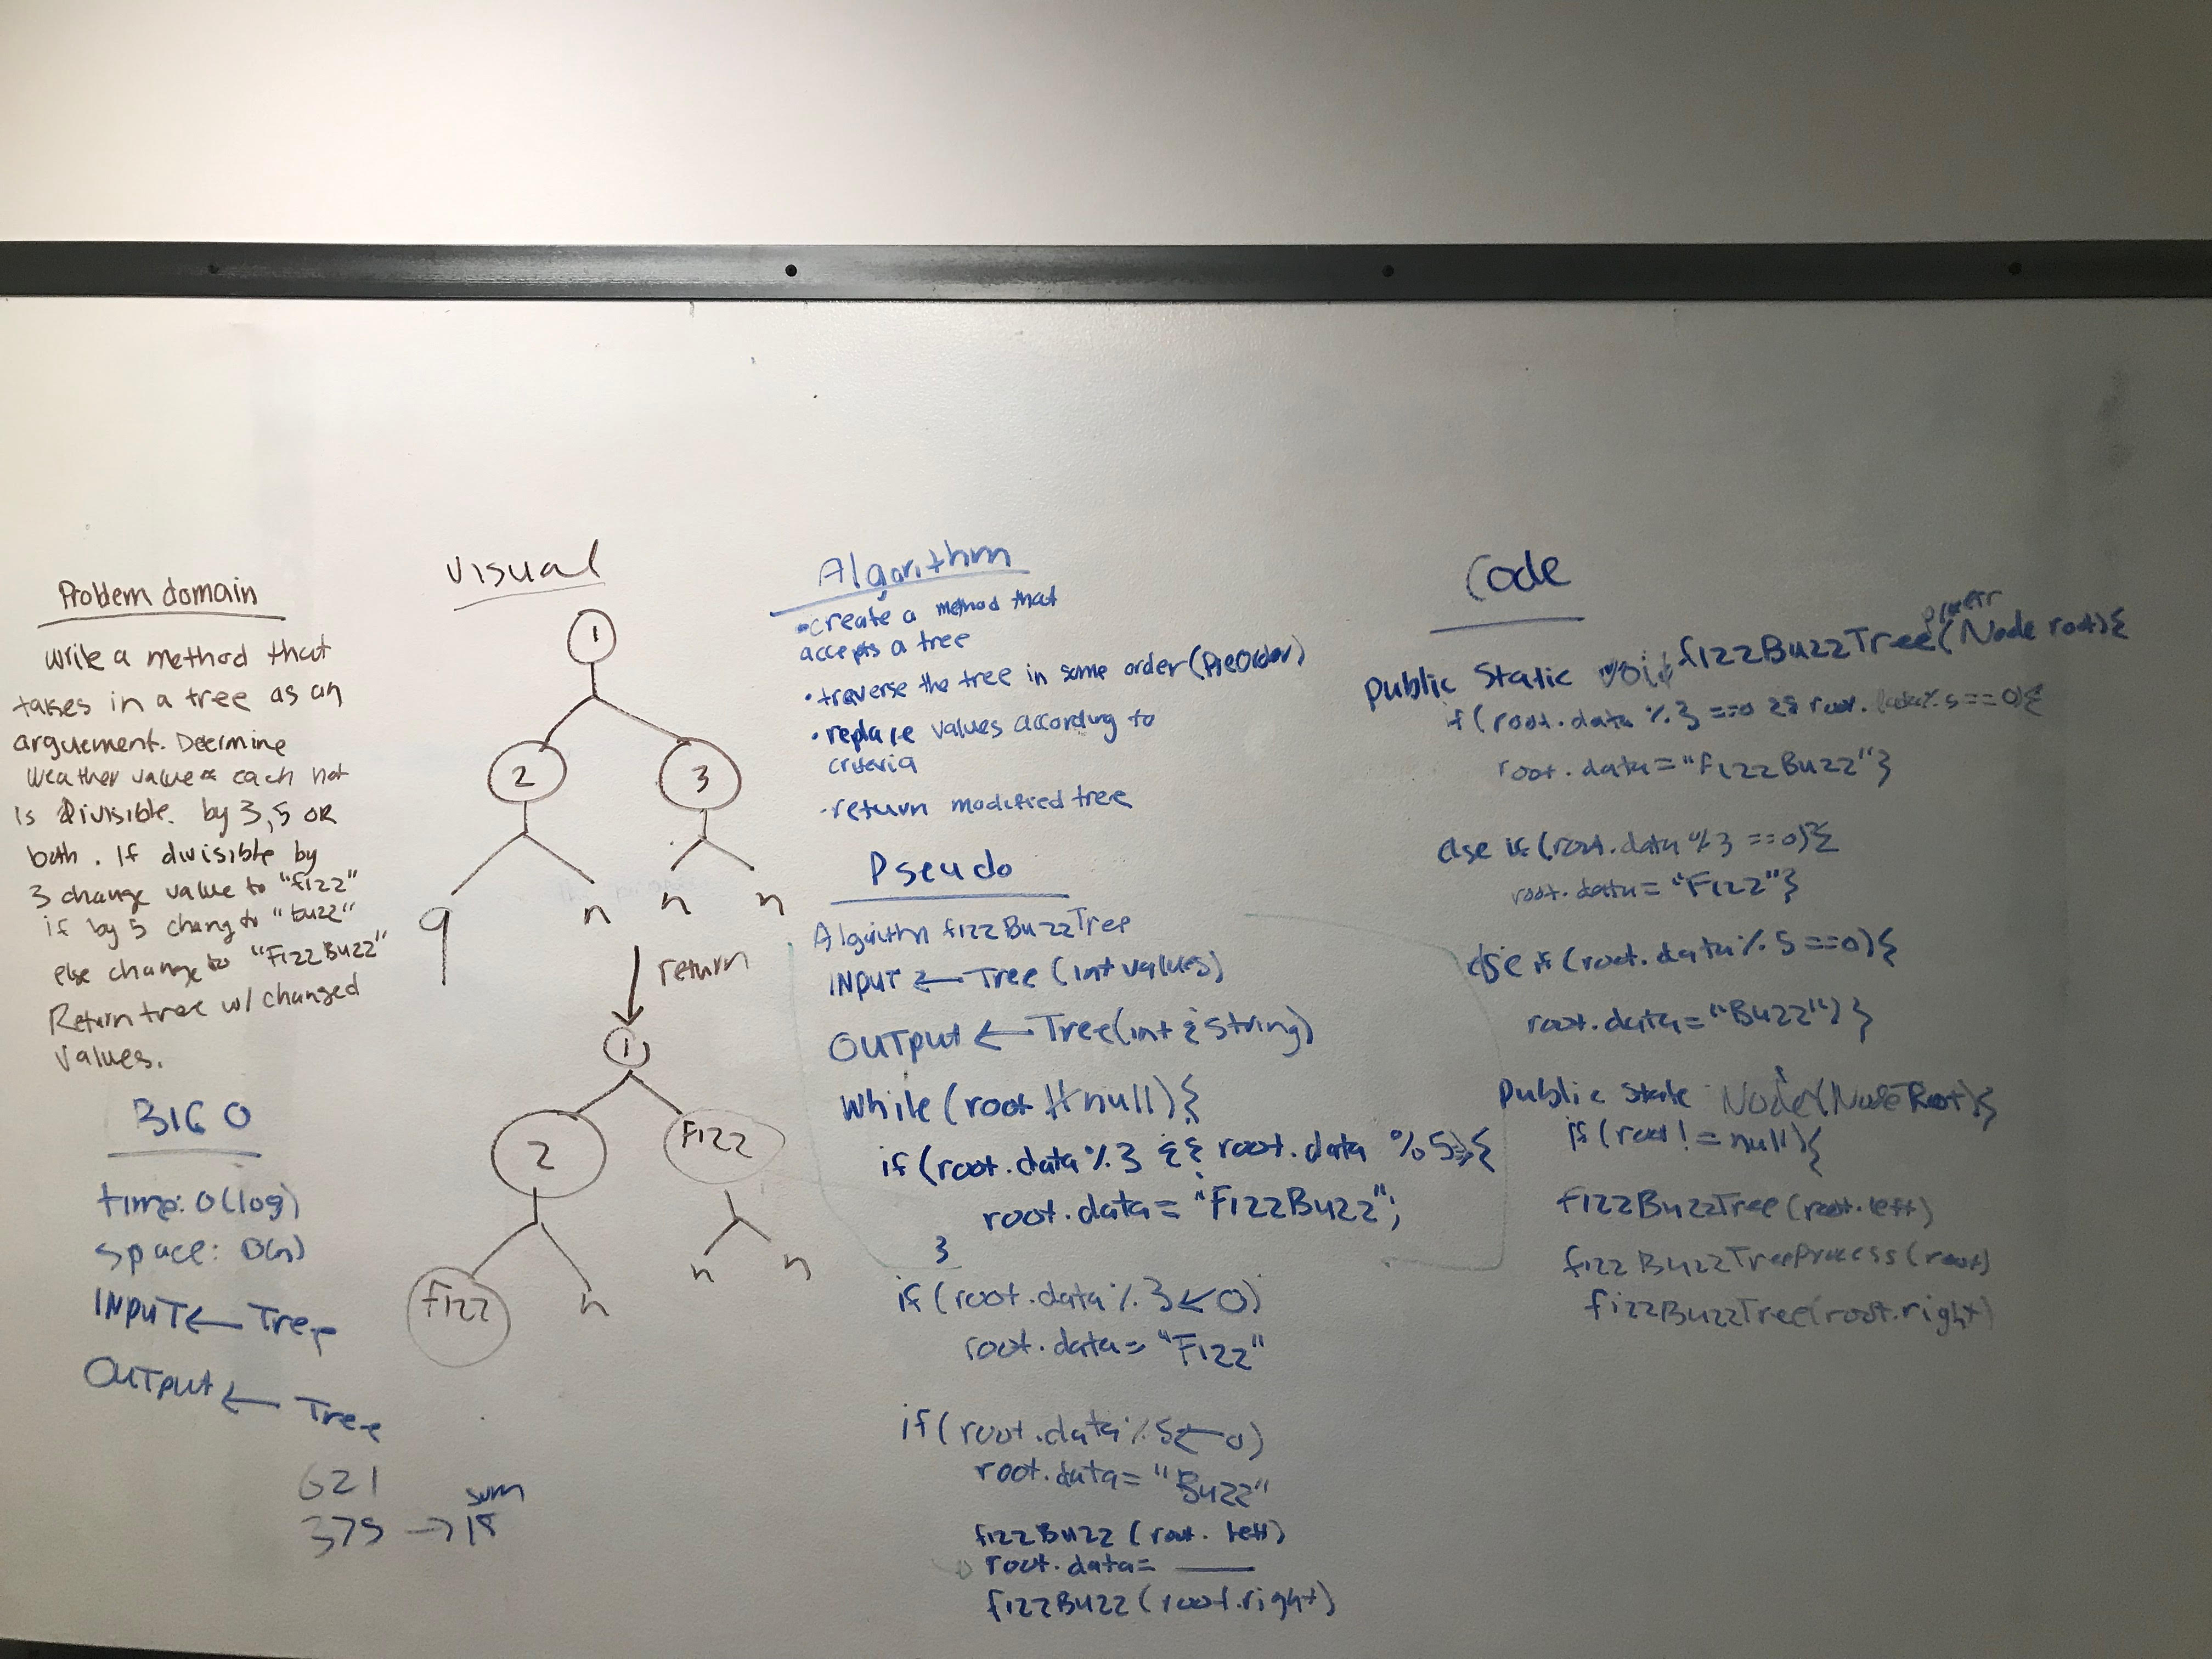 Problem domain
write a method that
takes in a tree as an
arguement. Determine
weather value each not
is divisible. by 3,5 OR
both. If divisible by
3 change value to "fizz"
if by 5 chang to "buzz"
else change to "FizzBuzz"
Return tree w/ changed
values.
BIG O
time: O(log)
space: O(n)
INPUT ← Tree
OUTPUT ← Tree
621
sum
375 → 18
Visual
1
2 3
9 n n n
return
1
2 Fizz
Fizz n n n
Algorithm
• create a method that
accepts a tree
• traverse the tree in some order (PreOrder)
• replace values according to
criteria
• return modified tree
Pseudo
Algorithm fizzBuzzTree
INPUT ← Tree (int values)
OUTPUT ← Tree(int & String)
while (root != null){
if (root.data % 3 && root.data % 5){
root.data = "FizzBuzz";
}
if (root.data % 3 ← 0)
root.data = "Fizz"
if (root.data % 5 ← 0)
root.data = "Buzz"
fizzBuzz (root. left)
root.data = ___
fizzBuzz (root.right)
Code
public static void fizzBuzzTree(Node root){
if (root.data % 3 ==0 && root.data % 5 ==0){
root.data = "FizzBuzz"}
else if (root.data % 3 ==0){
root.data = "Fizz"}
else if (root.data % 5 ==0){
root.data = "Buzz")}
public static Node(Node Root){
if (root != null){
fizzBuzzTree (root.left)
fizzBuzzTreeProcess (root)
fizzBuzzTree(root.right)